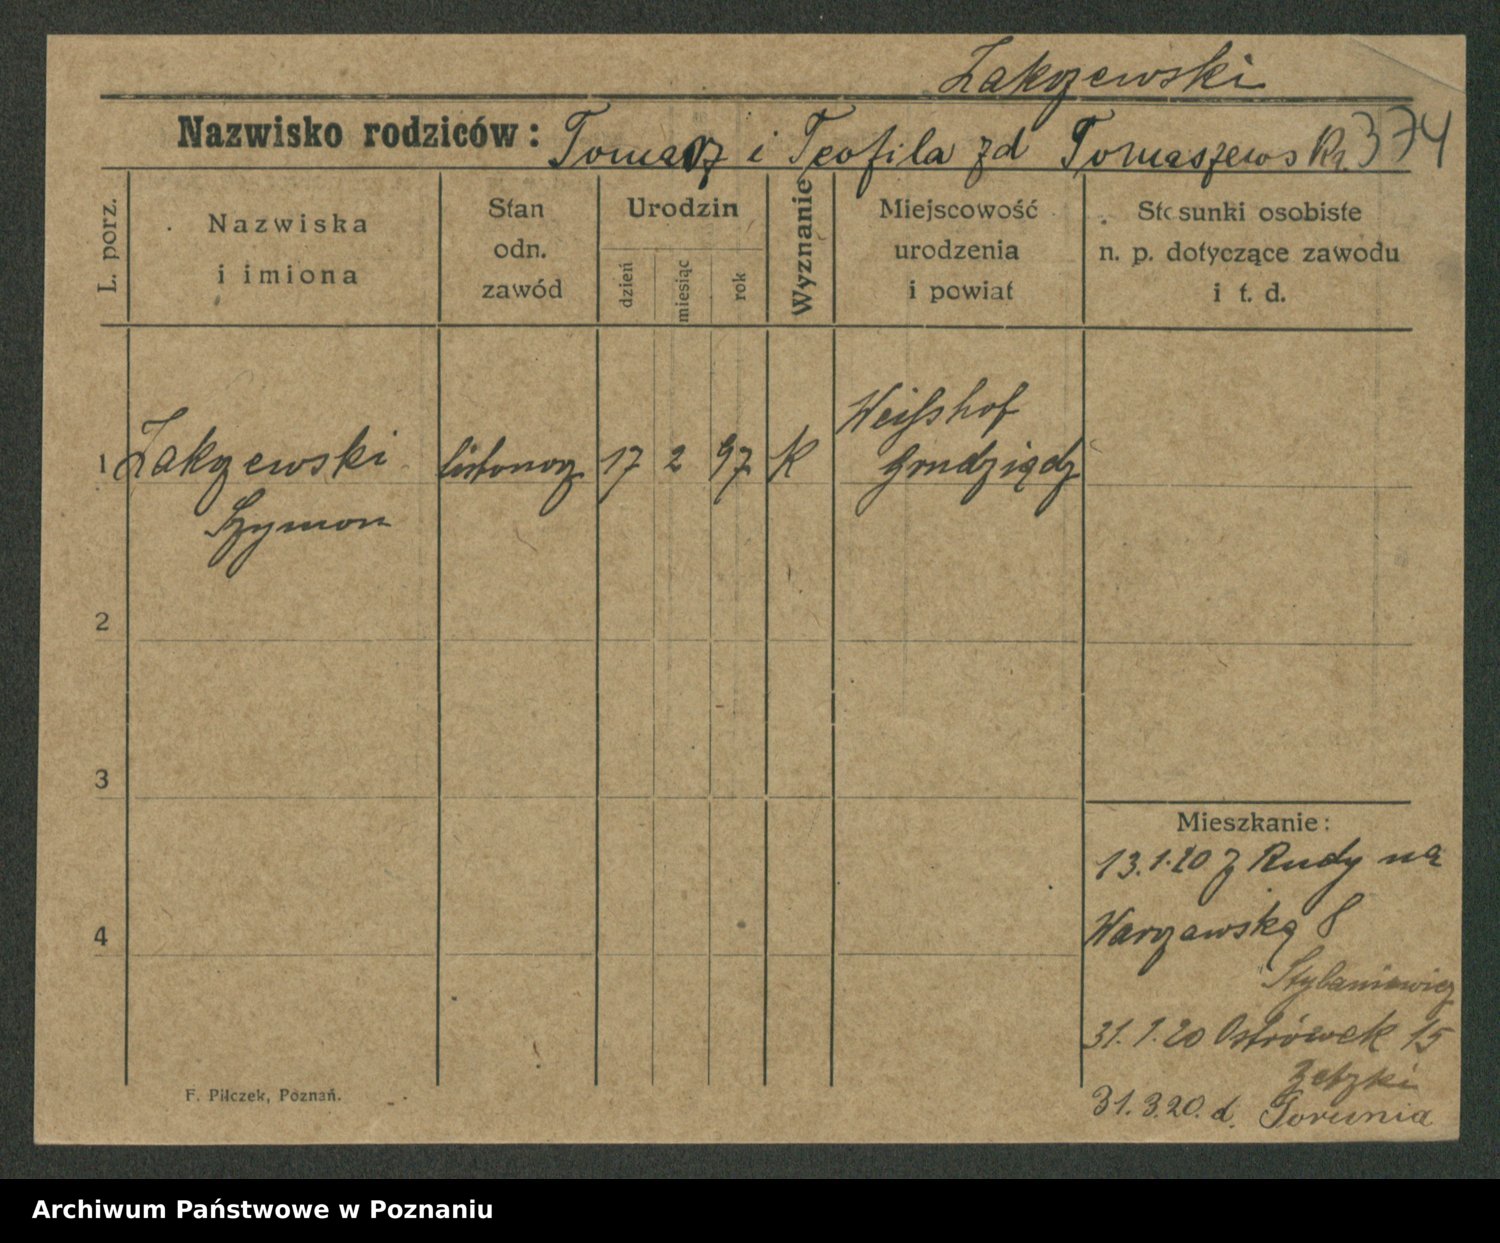 Zakrzewski
Nazwisko rodziców: Tomasz i Teofila zd Tomaszewska. 374
L. porz.
Nazwiska
i imiona
Stan
odn.
zawód
Urodzin
dzień
miesiąc
rok
Wyznanie
Miejscowość
urodzenia
i powiat
Stosunki osobiste
n. p. dotyczące zawodu
i t. d.
Weißhof
1 Zakrzewski listonosz 17 2 97 K Grudziądz
Szymon
2
3
4
Mieszkanie:
13.1.20 z Rudy na
Warszawską 8
31.1.20 Ostrówek 15
31.3.20. d. Torunia
F. Pilczek, Poznań.
Archiwum Państwowe w Poznaniu